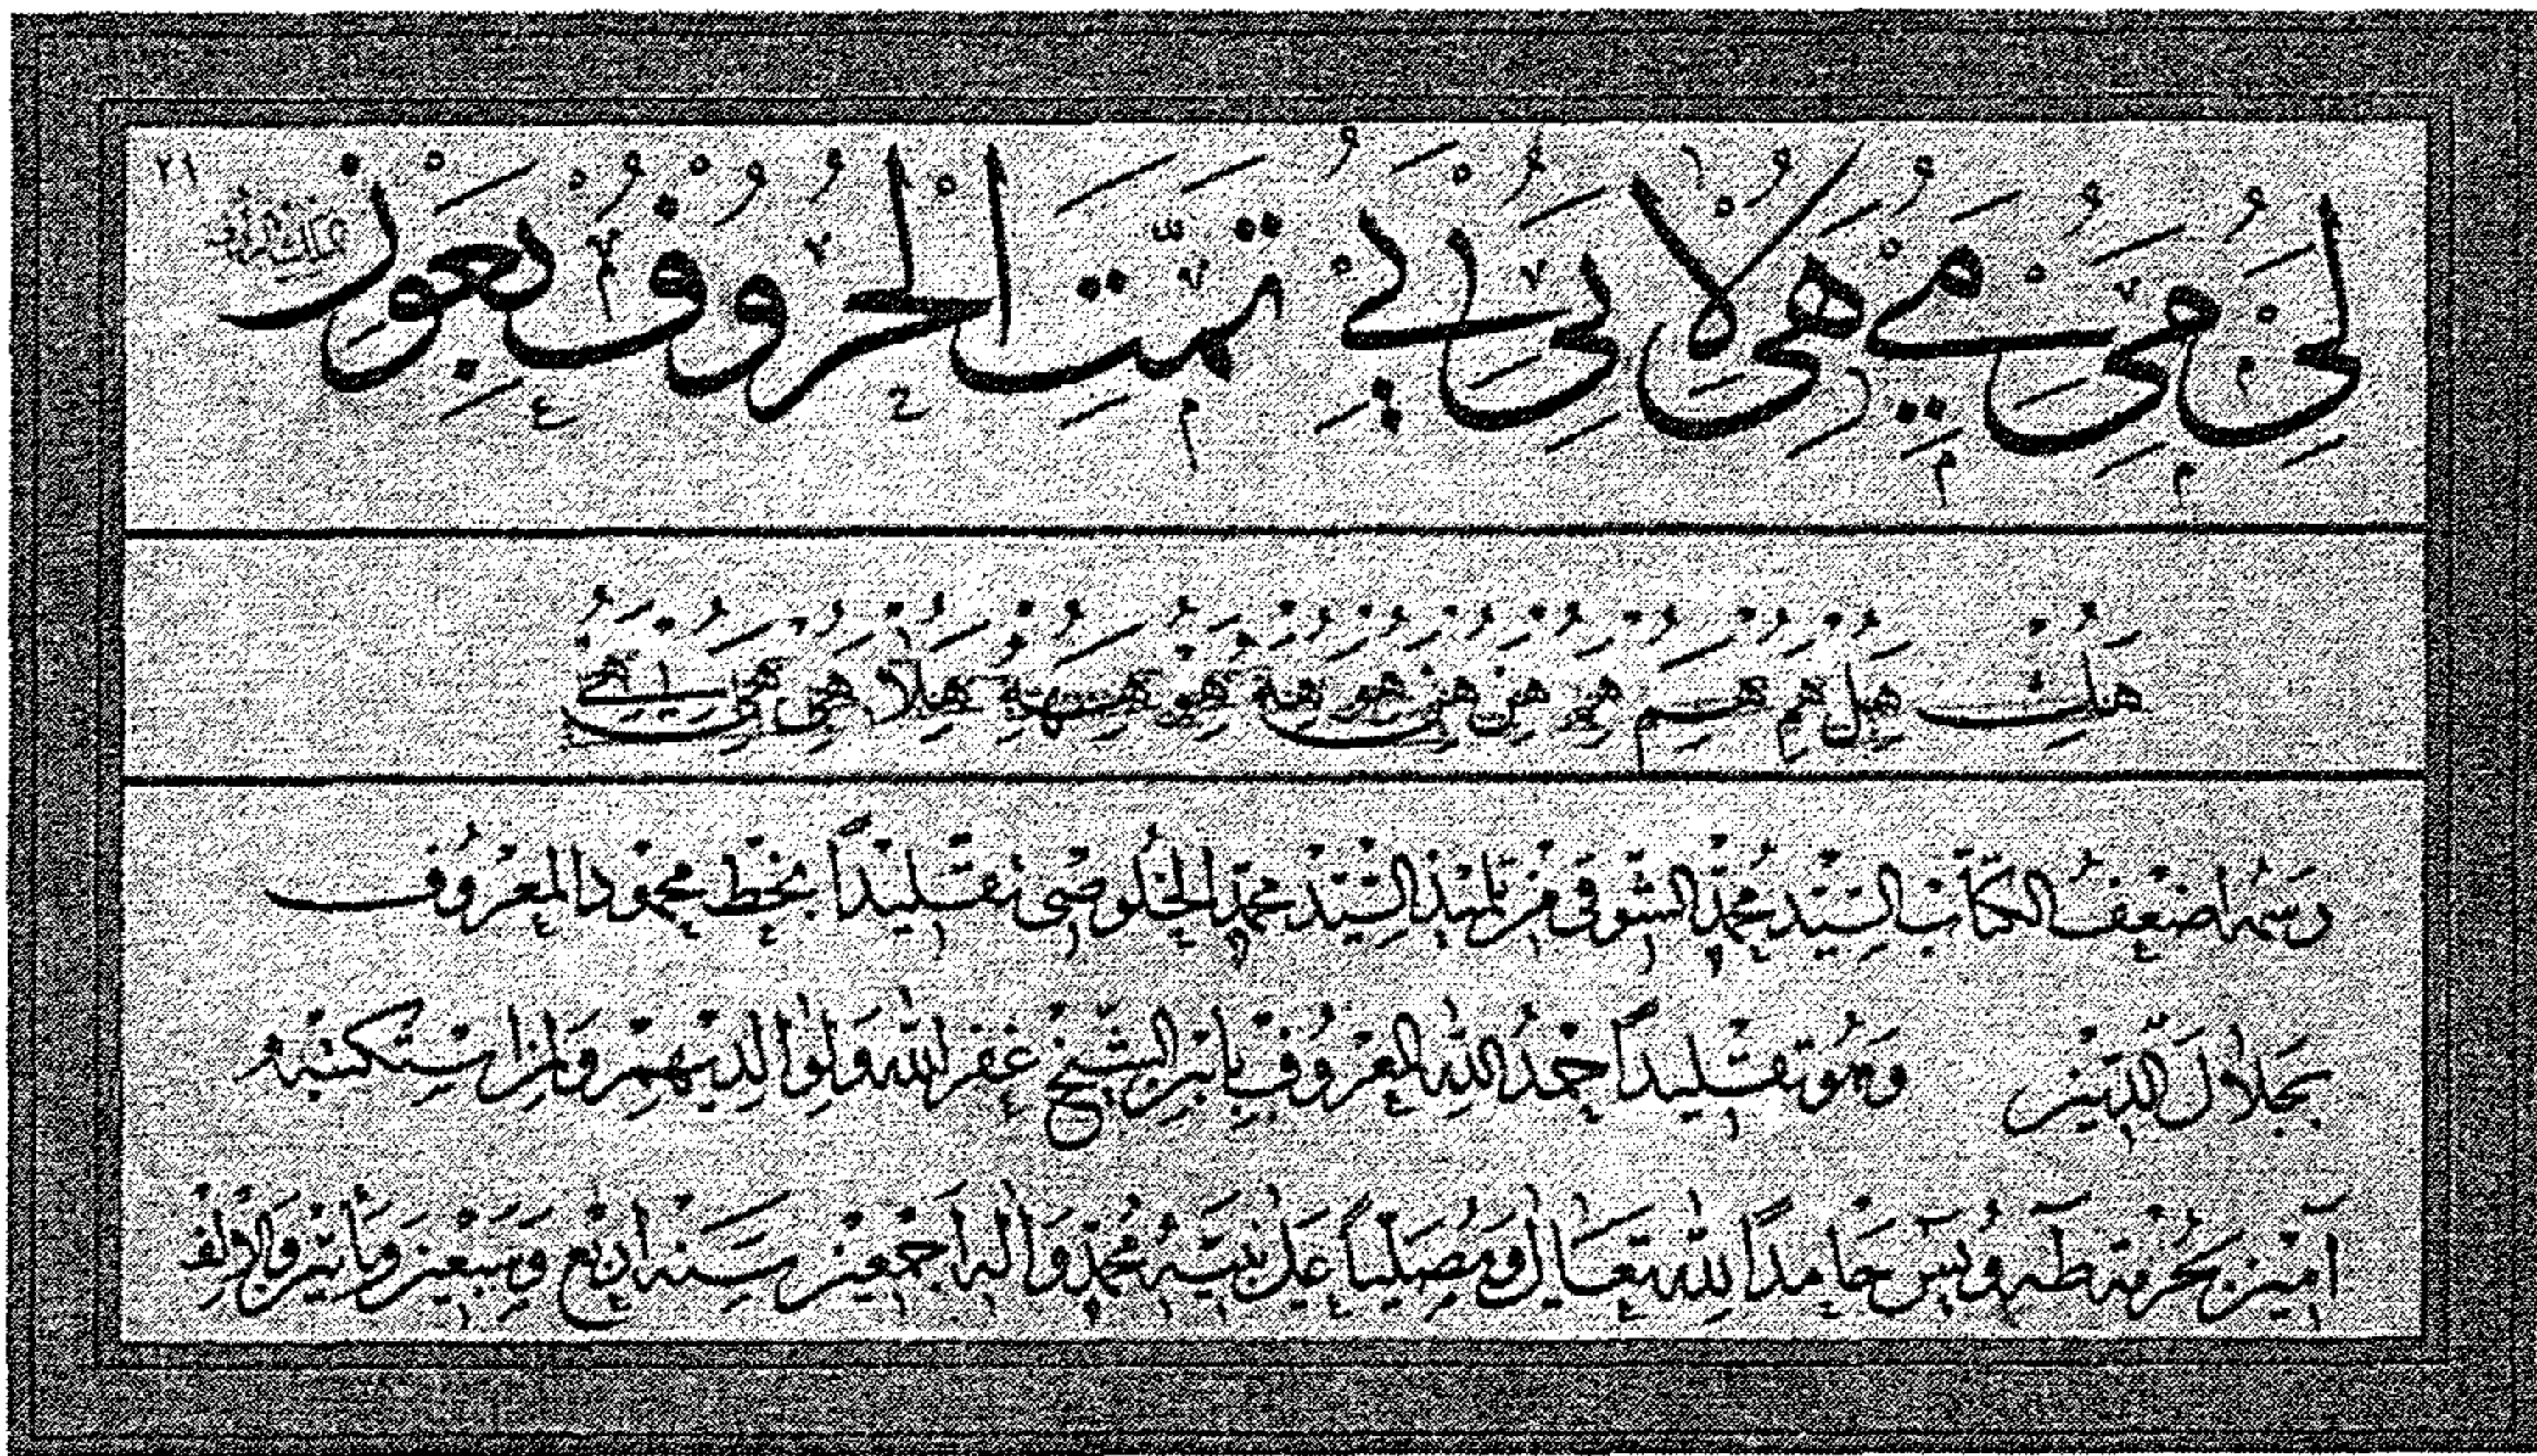 ٢١
لي حي مي هي لا يي ي تمت الحروف بعون
الملك الرؤف
هك هل هم هم هن هن هو هه هو ههه هلا هي هي
رسمه اضعف الكتاب السيد محمد الشوقي من تلميذ السيد محمد الخلوصي تقليداً بخط محمود المعروف
بجلال الدين وهو تقليداً حمد الله المعروف بابن الشيخ غفر الله ولوالديهم ولمن استكتبه
آمين بحرمة طه ويس حامداً لله تعالى ومصلياً على نبيه محمد وآله اجمعين سنه اربع وسبعين ومأتين والالف